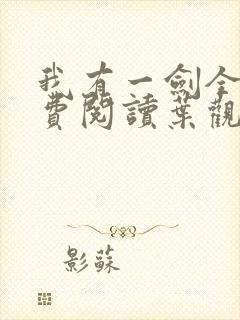 我有一劍全
費閱讀葉觀
影蘇